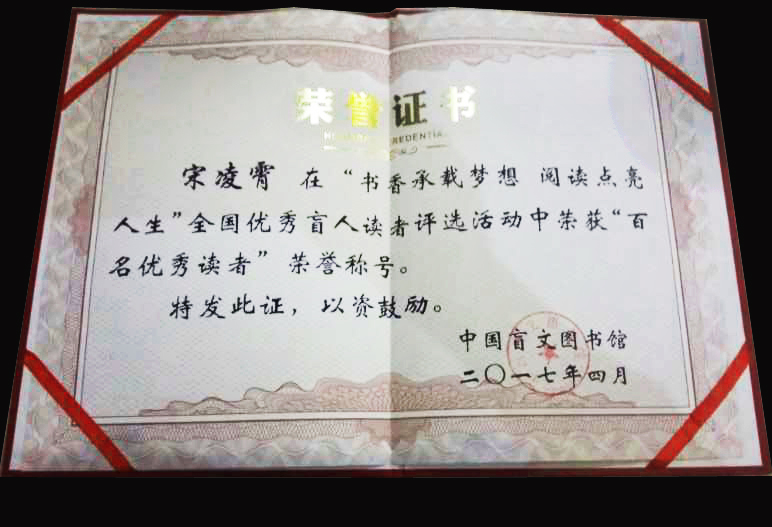 荣誉证书
宋凌霄 在“书香承载梦想 阅读点亮
人生”全国优秀盲人读者评选活动中荣获“百
名优秀读者”荣誉称号。
特发此证，以资鼓励。
中国盲文图书馆
二〇一七年四月